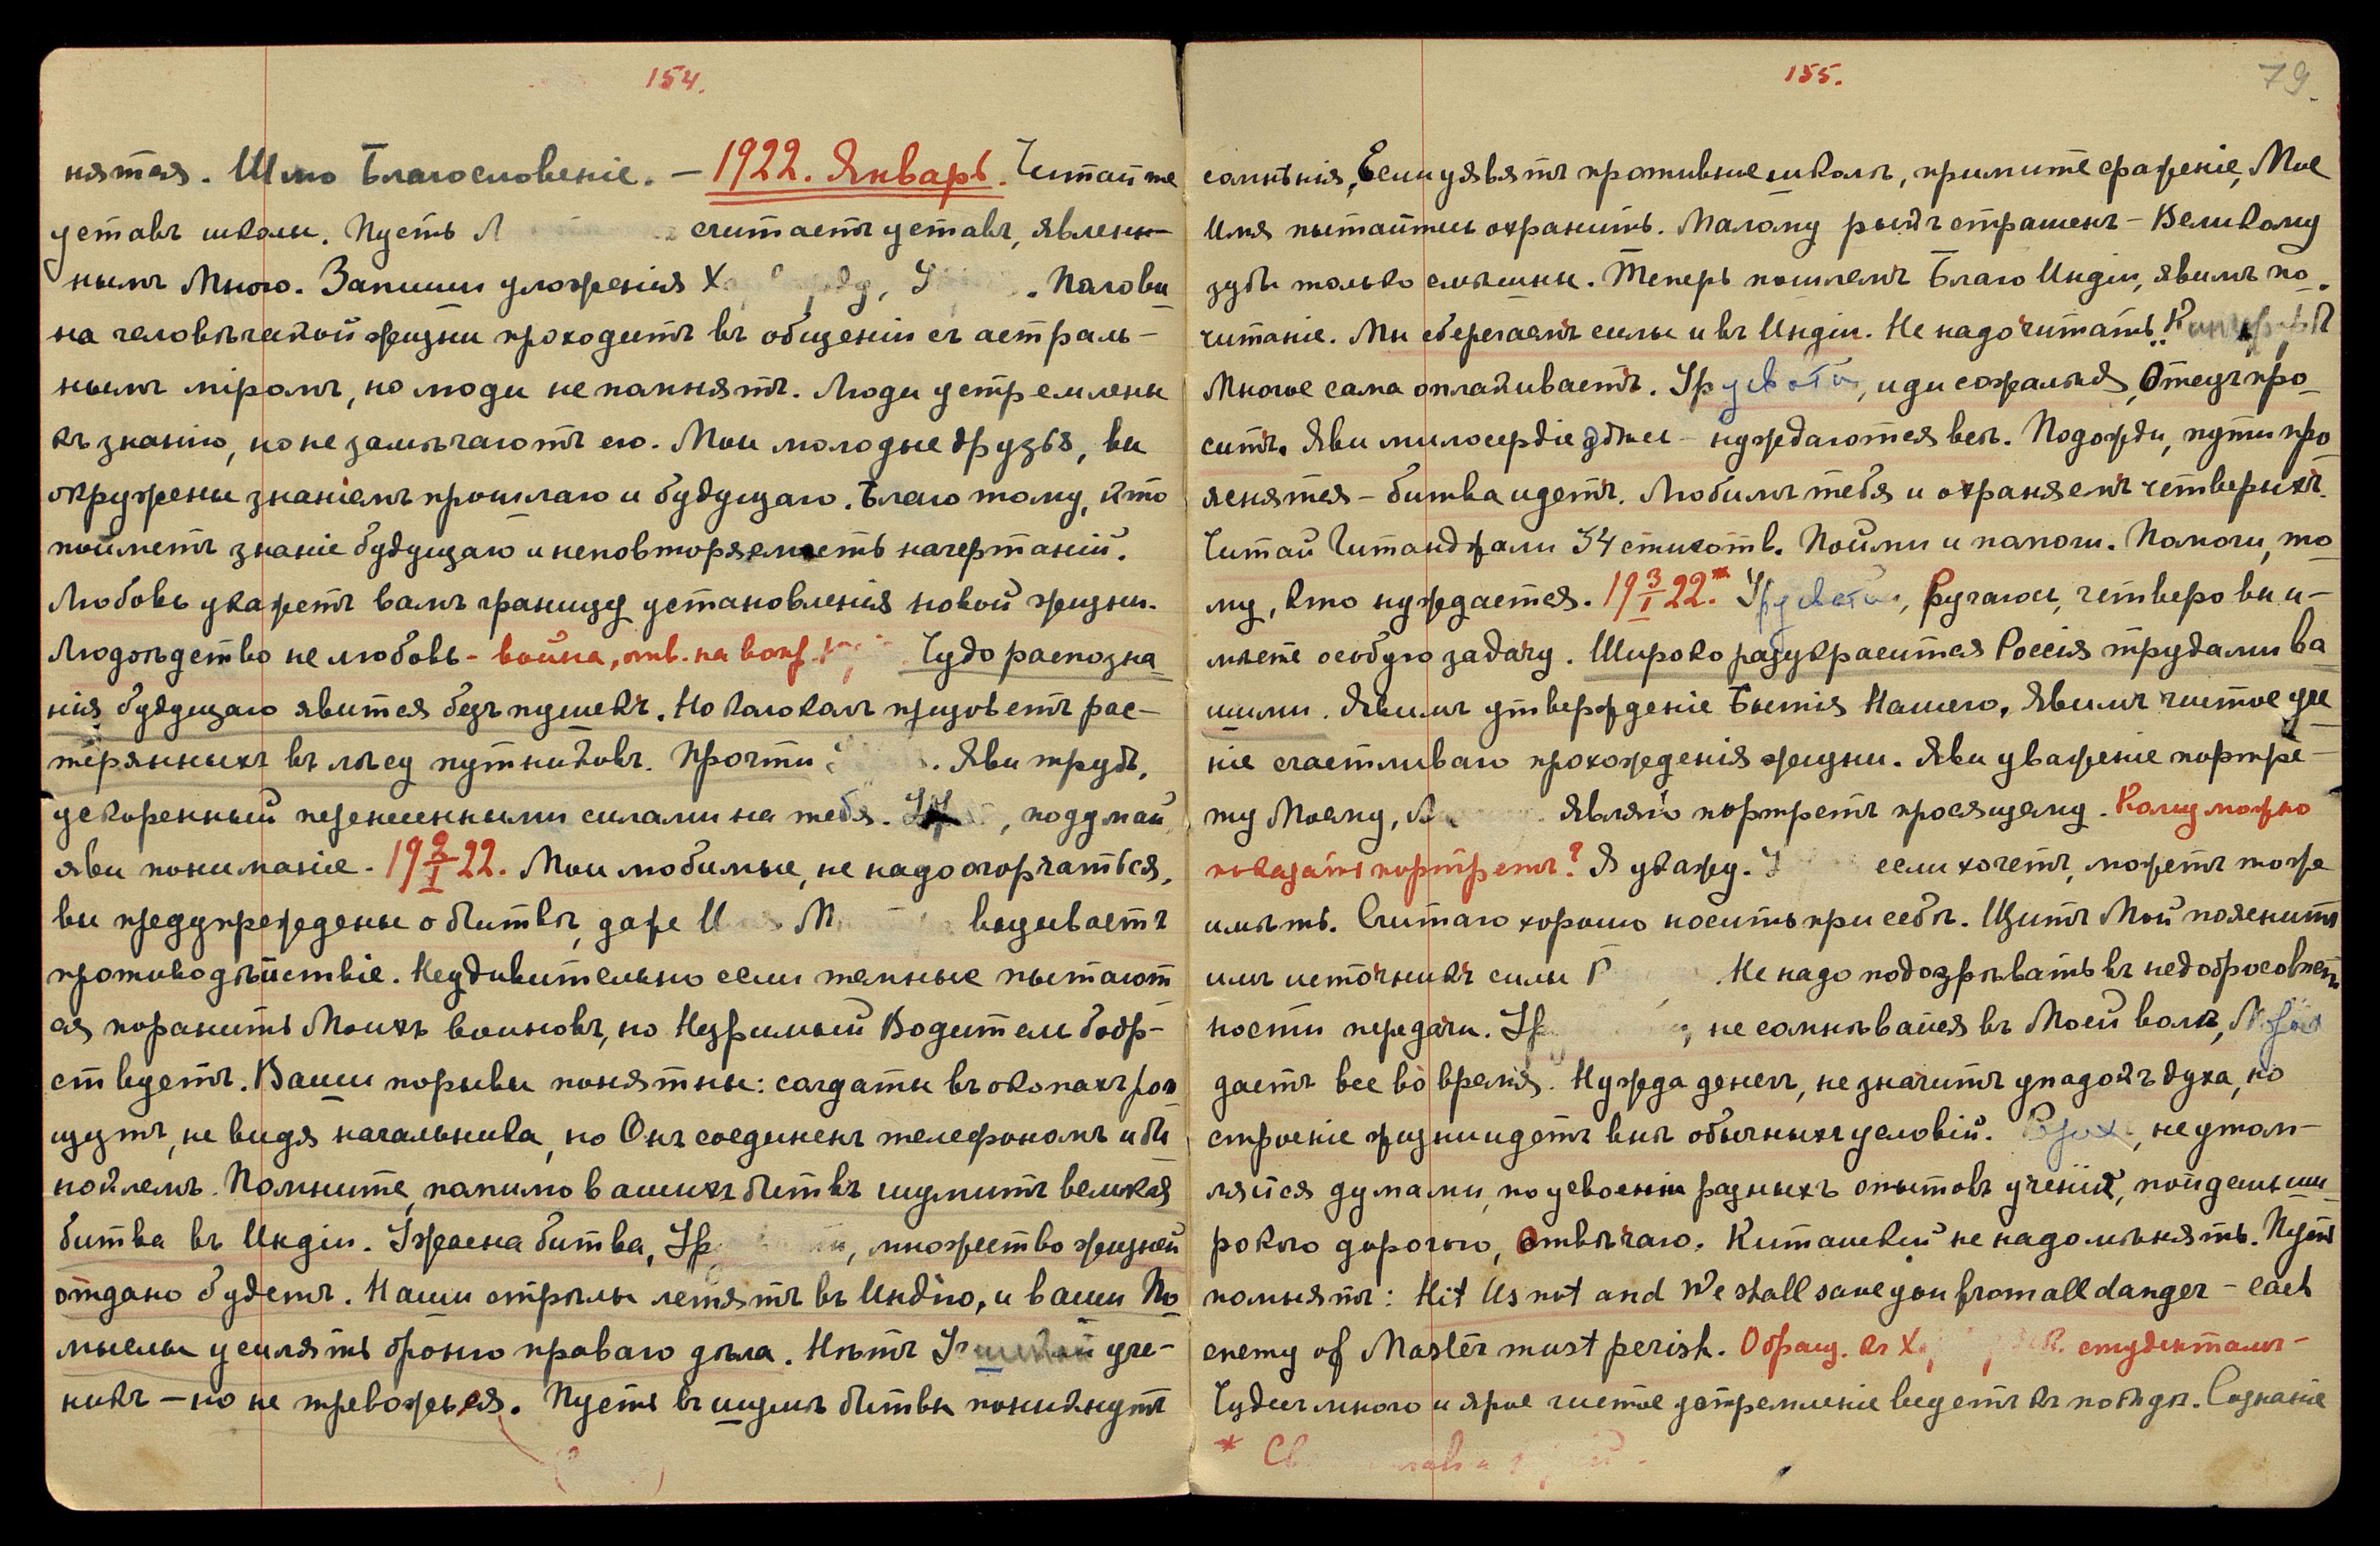 154.
нятся. Шлю Благословеніе. – 1922. Январь. Читайте
уставъ школы. Пусть Л считаетъ уставъ, явлен-
нымъ Мною. Запиши уложенія Х . Полови
на человѣческой жизни проходитъ въ общеніи съ астраль-
нымъ міромъ, но люди не помнятъ. Люди устремлены
къ знанію, но не замѣчаютъ его. Мои молодые друзья, вы
окружены знаніемъ прошлаго и будущаго. Благо тому, кто
пойметъ знаніе будущаго и неповторяемость начертаній.
Любовь укажетъ вамъ границу установленія новой жизни.
Людоѣдство не любовь – война, отв. на вопр. Чудо распозна
нія будущаго явится безъ пушекъ. Но колоколъ призоветъ рас-
терянныхъ въ лѣсу путниковъ. Прочти . Яви трудъ,
ускоренный перенесенными силами на тебя. , подумай,
яви пониманіе. 19 2/I 22. Мои любимые, не надо огорчаться,
вы предупреждены о битвѣ, даже И М вызываетъ
противодѣйствіе. Неудивительно если темные пытают
ся поранить Моихъ воиновъ, но Незримый Водитель бодр-
ствуетъ. Ваши порывы понятны: солдаты въ окопахъ роп
щутъ, не видя начальника, но Онъ соединенъ телефономъ и би
ноклемъ. Помните, помимо вашихъ битвъ шумитъ великая
битва въ Индіи. Ужасна битва, Ур , множество жизней
отдано будетъ. Наши стрѣлы летятъ въ Индію, и ваши по
мыслы усилятъ броню праваго дѣла. Нѣтъ уче-
никъ – но не тревожься. Пусть въ шумѣ битвы поникнутъ
155.
79.
сомнѣнія. Если уявятъ противные школѣ, примите сраженіе, Мое
Имя пытайтесь охранить. Малому рыкъ страшенъ – Великому
зубы только смѣшны. Теперь пошлемъ Благо Индіи, явимъ по-
читаніе. Мы сберегаемъ силы и въ Индіи. Не надо читать
Многое сама оплакиваетъ. Урусвати, иди сожалѣя, Отецъ про-
ситъ. Яви милосердіе – нуждаются всѣ. Подожди, пути про
яснятся – битва идетъ. Любимъ тебя и охраняемъ четверыхъ.
Читай Гитанджали 34 стихотв. Пойми и помоги. Помоги, то
му, кто нуждается. 19 3/I 22.* Урусвати, Ручаюсь, четверо вы и-
мѣете особую задачу. Широко разукрасится Россія трудами ва
шими. Явимъ утвержденіе Бытія Нашего, Явимъ чистое уче
ніе счастливаго прохожденія жизни. Яви уваженіе портре-
ту Моему, Являю портретъ просящему. Кому можно
показать портретъ? Я укажу. если хочетъ, можетъ тоже
имѣть. Считаю хорошо носить при себѣ. Щитъ Мой пояснитъ
имъ источникъ силы . Не надо подозрѣвать въ недобросовѣст
ности передачи. Ур , не сомнѣвайся въ Моей волѣ,
даетъ все во время. Нужда денегъ, не значитъ упадокъ духа, но
строеніе жизни идетъ внѣ обычныхъ условій. , не утом-
ляйся думами, по усвоеніи разныхъ опытовъ ученій, пойдешь ши
рокою дорогою, Отвѣчаю. Китайскій не надо мѣнять. Пусть
помнятъ: Hit Us not and We shall save you from all danger – each
enemy of Master must perish. Обращ. къ Х студентамъ –
Чудесъ много и ярое чистое устремленіе ведетъ къ побѣдѣ. Сознаніе
*